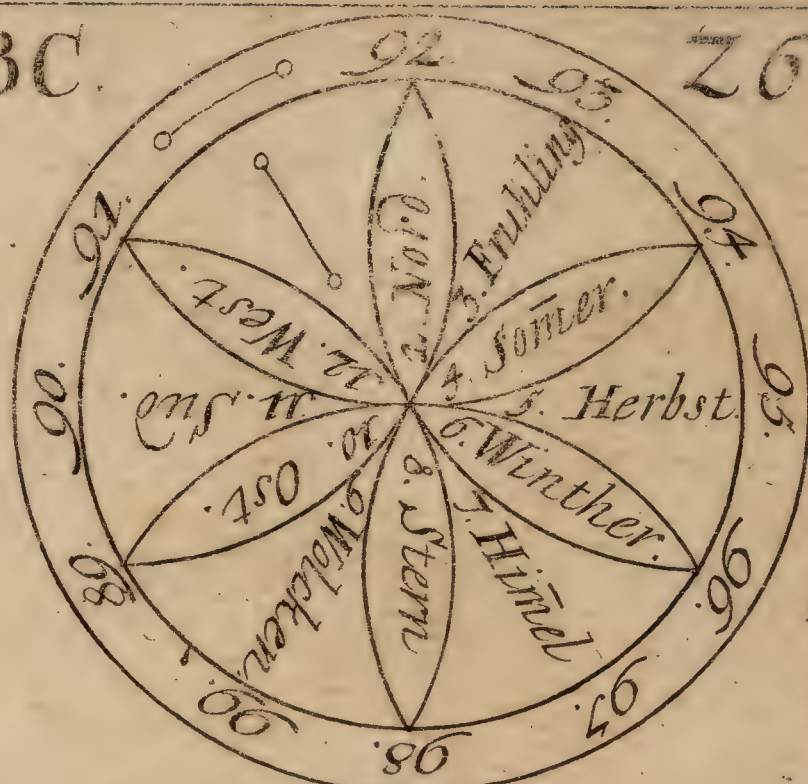 BC.
Z6
92.
93.
94.
95.
96.
97.
98.
99.
89.
90.
91.
2. Nord.
3. Fruhling
4. Som̄er.
5. Herbst.
6. Winther.
7. Him̄el
8. Stern
9. Wolcken.
10. Ost.
11. Sud.
12. West.